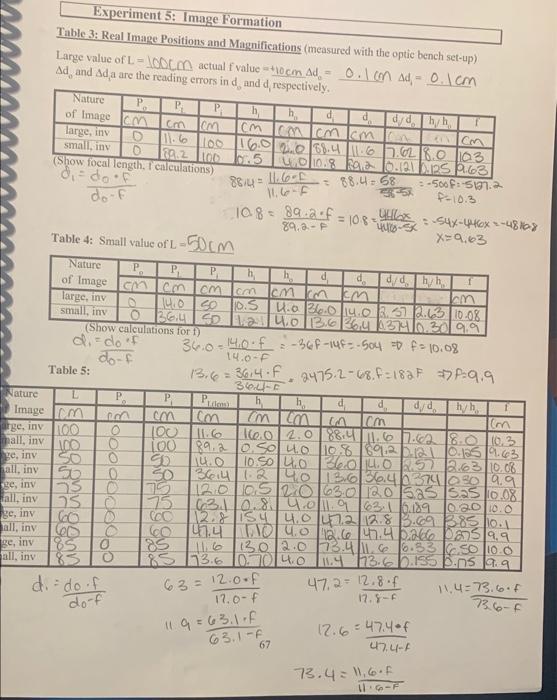 Experiment 5: Image Formation
Table 3: Real Image Positions and Magnifications (measured with the optic bench set-up)
Large value of L = 100cm actual f value = +10cm Δd₀ = 0.1cm Δdᵢ = 0.1cm
Δd₀ and Δdᵢa are the reading errors in d₀ and dᵢ respectively.
Nature of Image P₀ P_L Pᵢ hᵢ h₀ dᵢ d₀ dᵢ/d₀ hᵢ/h₀ f
cm cm cm cm cm cm cm cm
large, inv 0 11.6 100 16.0 2.0 88.4 11.6 7.62 8.0 10.3
small, inv 0 89.2 100 0.5 4.0 10.8 89.2 0.121 0.125 9.63
(Show focal length, f calculations)
dᵢ = d₀·f / d₀-f
88.4 = 11.6·f / 11.6-f = 88.4 = 58 = -500f = -5127.2
f=10.3
10.8 = 89.2·f / 89.2-f = 10.8 = = -54x-446x = -4816.8
x=9.63
Table 4: Small value of L = 50cm
Nature of Image P₀ P_L Pᵢ hᵢ h₀ dᵢ d₀ dᵢ/d₀ hᵢ/h₀ f
cm cm cm cm cm cm cm cm
large, inv 0 14.0 50 10.5 4.0 36.0 14.0 2.57 2.63 10.08
small, inv 0 36.4 50 1.2 4.0 13.6 36.4 0.374 0.30 9.9
(Show calculations for f)
dᵢ = d₀·f / d₀-f
36.0 = 14.0·f / 14.0-f = -36f-14f = -504 ⇒ f=10.08
13.6 = 36.4·f / 36.4-f = 2475.2-68.f=182f ⇒ f=9.9
Table 5:
Nature Image L P₀ Pᵢ P_L(lens) hᵢ h₀ dᵢ d₀ dᵢ/d₀ hᵢ/h₀ f
cm cm cm cm cm cm cm cm cm
rge, inv 100 0 100 11.6 16.0 2.0 88.4 11.6 7.62 8.0 10.3
nall, inv 100 0 100 89.2 0.50 4.0 10.8 89.2 0.121 0.125 9.63
ge, inv 50 0 50 14.0 10.50 4.0 36.0 14.0 2.57 2.63 10.08
all, inv 50 0 50 36.4 1.2 4.0 13.6 36.4 0.374 0.30 9.9
ge, inv 75 0 75 12.0 10.5 2.0 63.0 12.0 5.25 5.25 10.08
all, inv 75 0 75 63.1 0.8 4.0 11.9 63.1 0.189 0.20 10.0
ge, inv 60 0 60 12.8 15.4 4.0 47.2 12.8 3.69 3.85 10.1
all, inv 60 0 60 47.4 1.10 4.0 12.6 47.4 0.266 0.275 9.9
ge, inv 85 0 85 11.6 13.0 2.0 73.4 11.6 6.33 6.50 10.0
all, inv 85 0 85 73.6 0.70 4.0 11.4 73.6 0.155 9.9
dᵢ = d₀·f / d₀-f
63 = 12.0·f / 12.0-f
47.2 = 12.8·f / 12.8-f
11.4 = 73.6·f / 73.6-f
11.9 = 63.1·f / 63.1-f
12.6 = 47.4·f / 47.4-f
67
73.4 = 11.6·f / 11.6-f